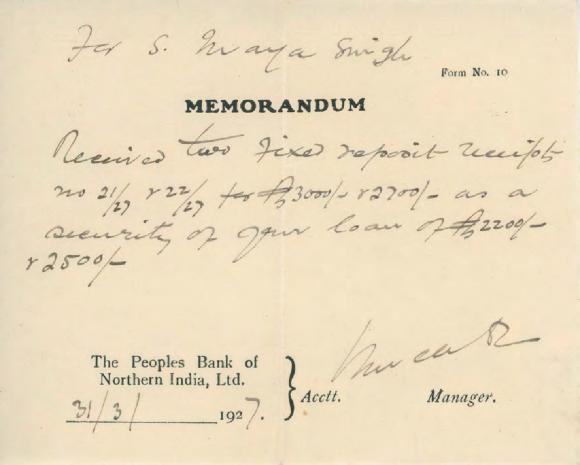 For S. Maya Singh
Form No. 10
MEMORANDUM
Received two Fixed deposit receipts
no 21/27 & 22/27 for Rs 3000/- & 2700/- as a
security of your loan of Rs 2200/-
& 2500/-
The Peoples Bank of
Northern India, Ltd.
31/3/1927.
Acctt. Manager.